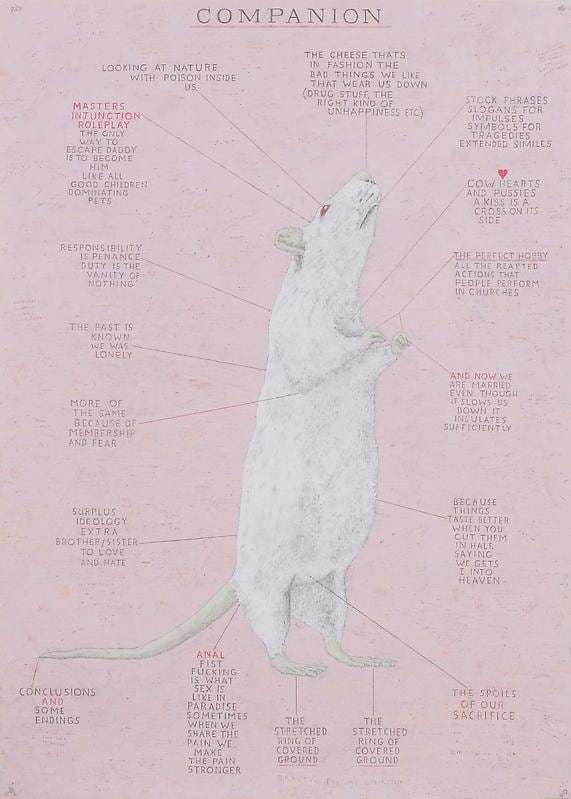 COMPANION
LOOKING AT NATURE
WITH POISON INSIDE
US
THE CHEESE THATS
IN FASHION THE
BAD THINGS WE LIKE
THAT WEAR US DOWN
(DRUG STUFF, THE
RIGHT KIND OF
UNHAPPINESS ETC)
MASTERS
INJUNCTION
ROLEPLAY
THE ONLY
WAY TO
ESCAPE DADDY
IS TO BECOME
HIM
LIKE ALL
GOOD CHILDREN
DOMINATING
PETS
STOCK PHRASES
SLOGANS FOR
IMPULSES
SYMBOLS FOR
TRAGEDIES
EXTENDED SIMILES
COW HEARTS
AND PUSSIES
A KISS IS A
CROSS ON ITS
SIDE
RESPONSIBILITY
IS PENANCE
DUTY IS THE
VANITY OF
NOTHING
THE PERFECT HOBBY
ALL THE
ACTIONS THAT
PEOPLE PERFORM
IN CHURCHES
THE PAST IS
KNOWN
WE WAS
LONELY
AND NOW WE
ARE MARRIED
EVEN THOUGH
IT SLOWS US
DOWN IT
INSULATES
SUFFICIENTLY
MORE OF
THE SAME
BECAUSE OF
MEMBERSHIP
AND FEAR
SURPLUS
IDEOLOGY
EXTRA
BROTHER/SISTER
TO LOVE
AND HATE
BECAUSE
THINGS
TASTE BETTER
WHEN YOU
CUT THEM
IN HALF
SAYING
WE GETS
I INTO
HEAVEN
CONCLUSIONS
AND
SOME
ENDINGS
ANAL
FIST
FUCKING
IS WHAT
SEX IS
LIKE IN
PARADISE
SOMETIMES
WHEN WE
SHARE THE
PAIN WE
MAKE
THE PAIN
STRONGER
THE
STRETCHED
RING OF
COVERED
GROUND
THE
STRETCHED
RING OF
COVERED
GROUND
THE SPOILS
OF OUR
SACRIFICE